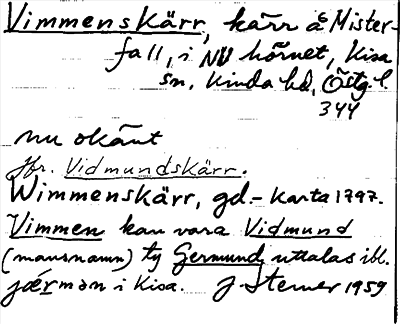 Vimmenskärr, kärr å Mister-
fall, i NV hörnet, Kisa
sn, Kinda hd, Östg. l.
344
nu okänt
Jfr. Vidmundskärr.
Wimmenskärr, gd.- karta 1797.
Vimmen kan vara Vidmund
(mansnamn) ty Germund uttalas ibl.
järmən i Kisa. J. Sterner 1959